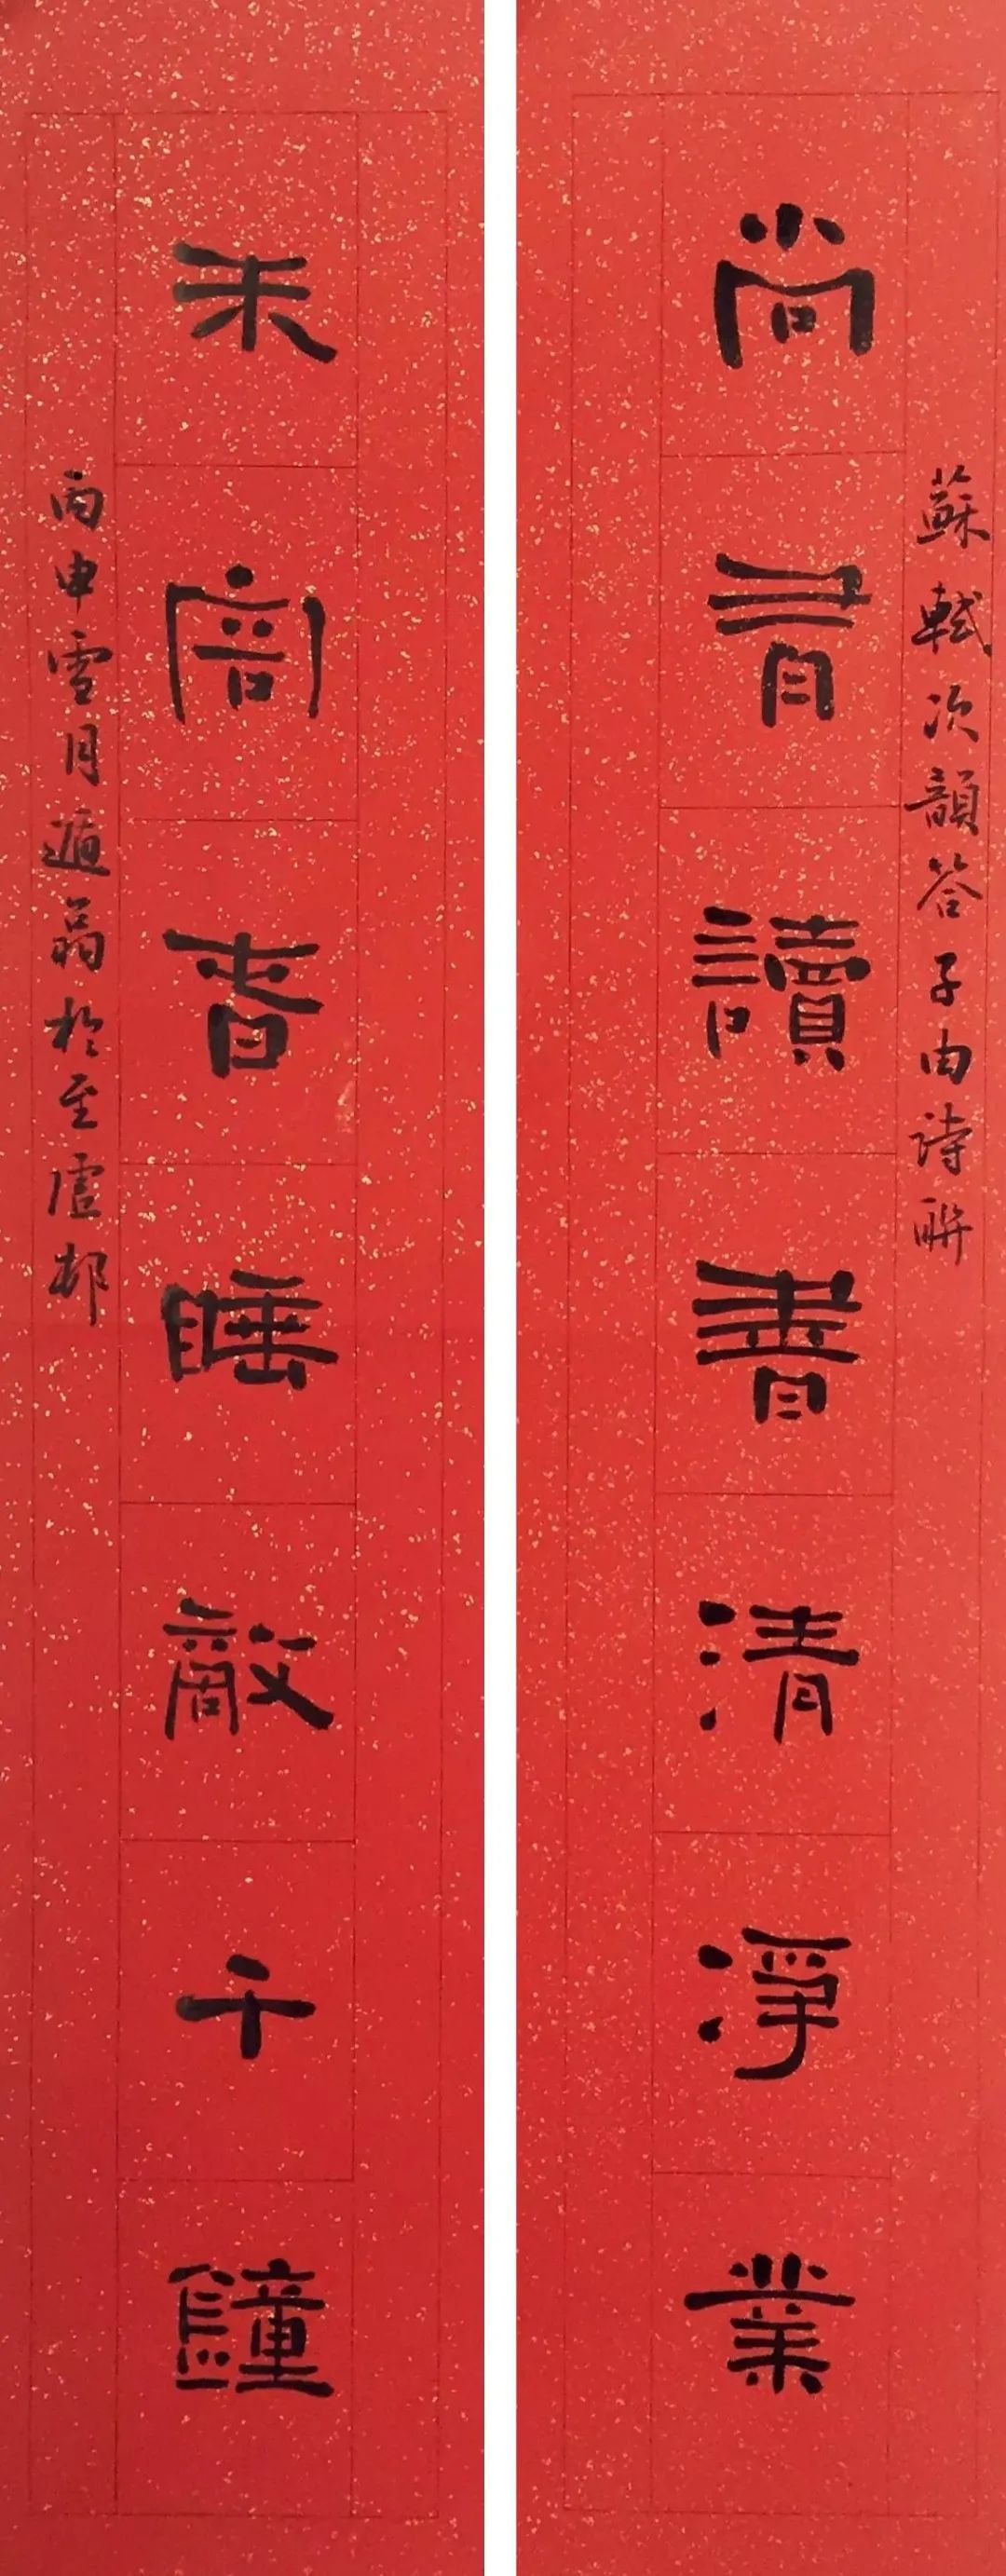 蘇軾次韻答子由詩聯
尚有讀書清凈業
未容春睡敵千鐘
丙申雪月遁翁於至虛邨